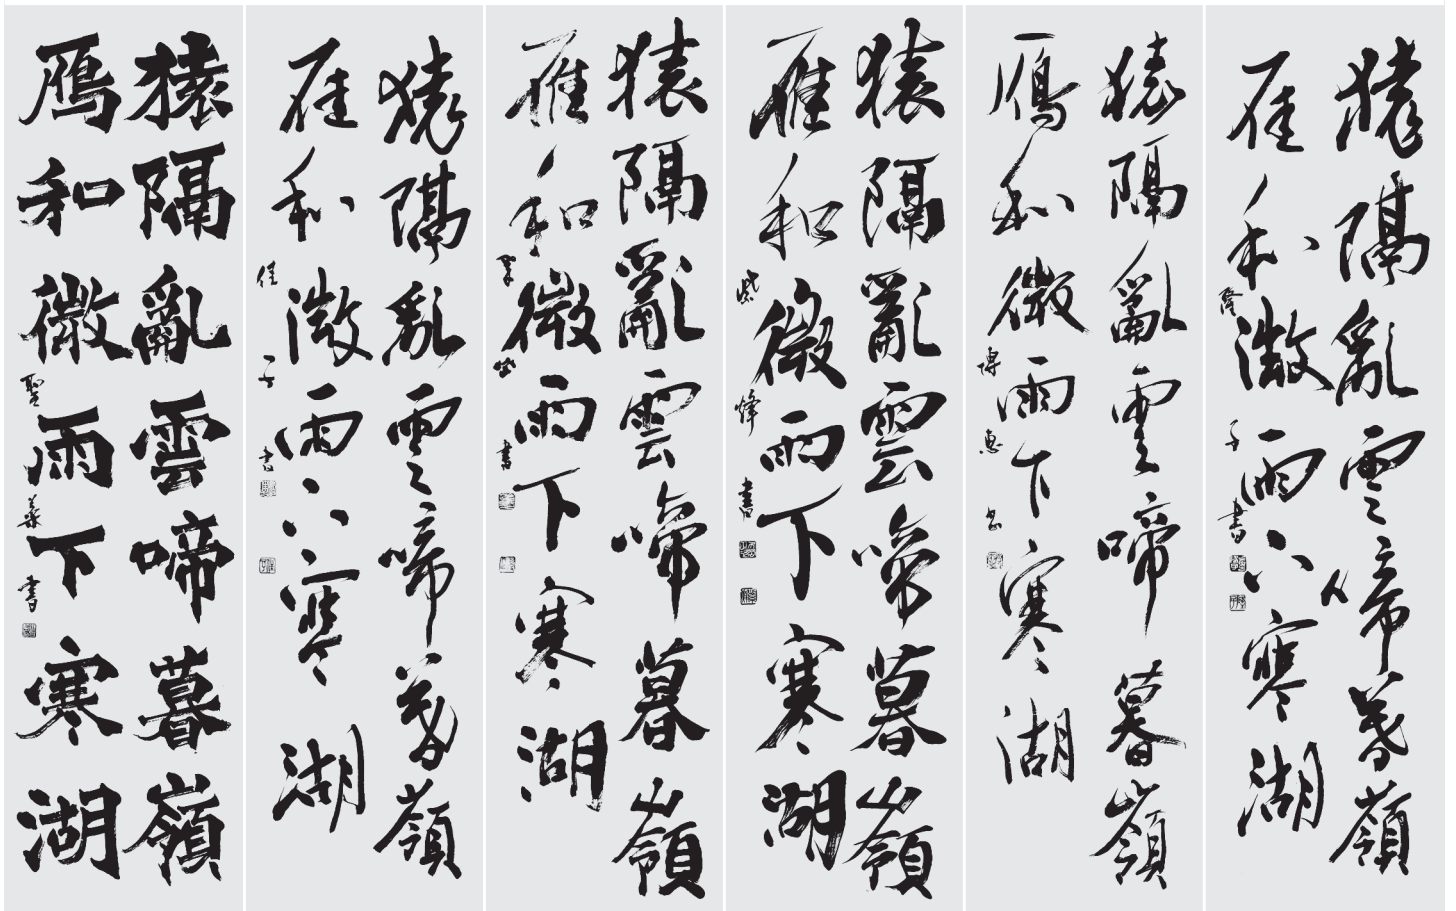 猿隔亂雲啼暮嶺
雁和微雨下寒湖
隆子書
猿隔亂雲啼暮嶺
鴈和微雨下寒湖
博惠書
猿隔亂雲啼暮嶺
雁和微雨下寒湖
紫烽書
猿隔亂雲啼暮嶺
雁和微雨下寒湖
書
猿隔亂雲啼暮嶺
雁和微雨下寒湖
佳子書
猿隔亂雲啼暮嶺
鴈和微雨下寒湖
聖書